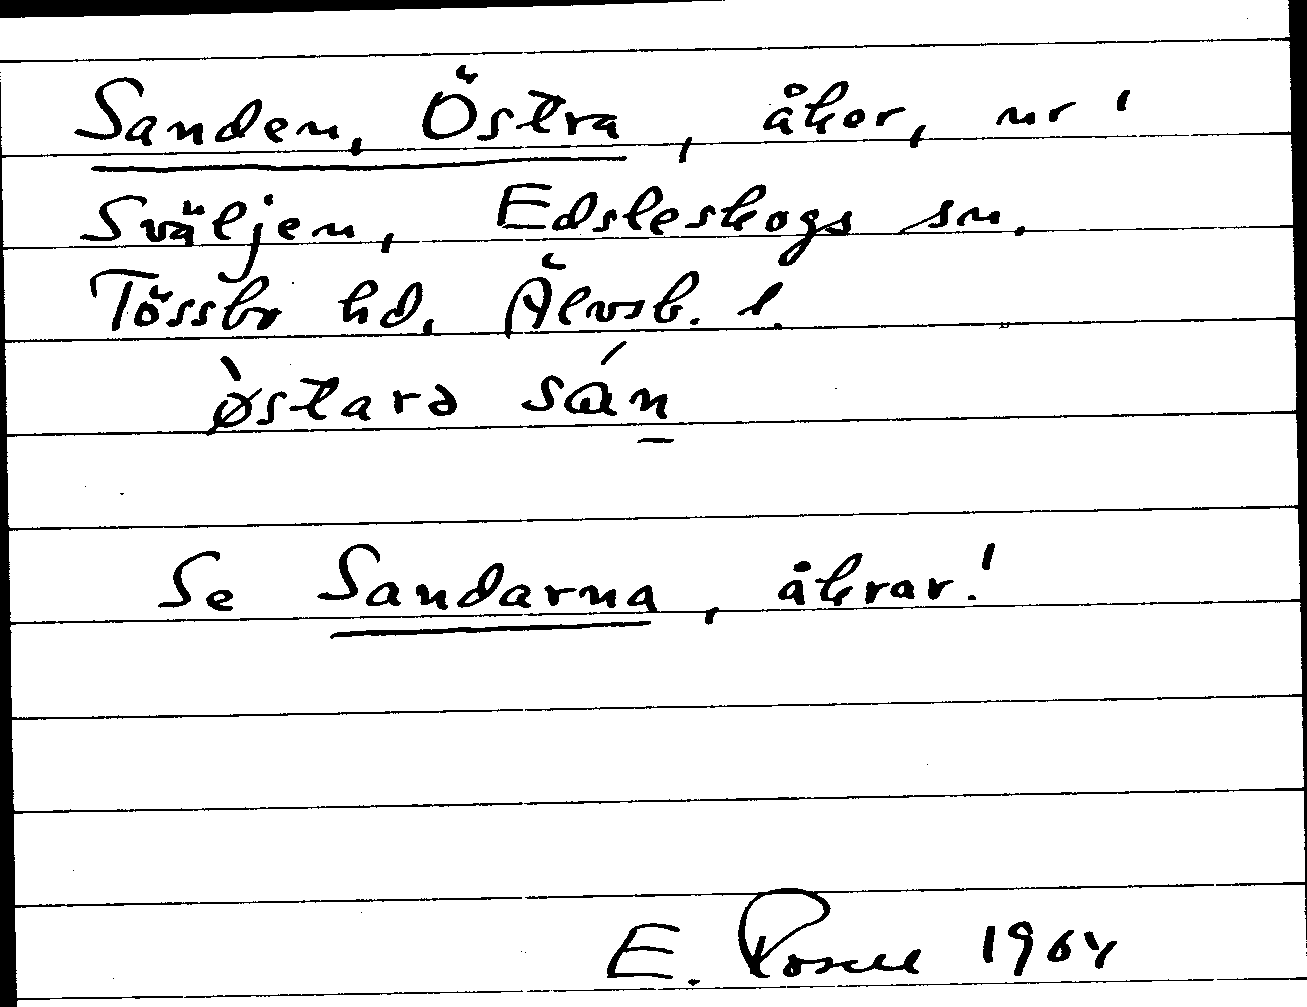 Sanden, Östra, åker, nr 1
Sväljen, Edsleskogs sn.
Tössbo hd. Älvsb. l.
ø̀starə sán̲
Se Sandarna, åkrar!
E. Rosell 1964